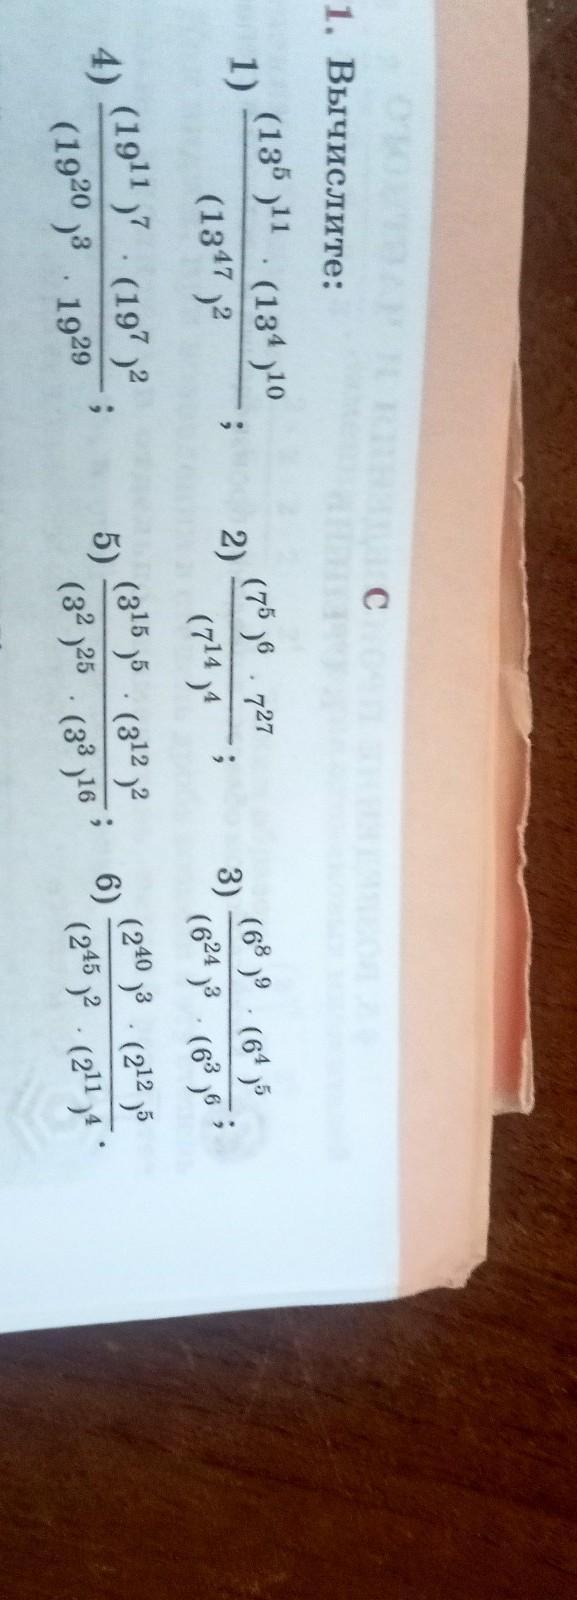 С
1. Вычислите:
1) (13^5)^11 · (13^4)^10 / (13^47)^2; 2) (7^5)^6 · 7^27 / (7^14)^4; 3) (6^8)^9 · (6^4)^5 / (6^24)^3 · (6^3)^6;
4) (19^11)^7 · (19^7)^2 / (19^20)^3 · 19^29; 5) (3^15)^5 · (3^12)^2 / (3^2)^25 · (3^3)^16; 6) (2^40)^3 · (2^12)^5 / (2^45)^2 · (2^11)^4.